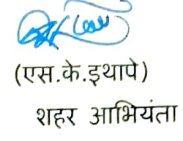 (एस.के.इथापे)
शहर आभियंता